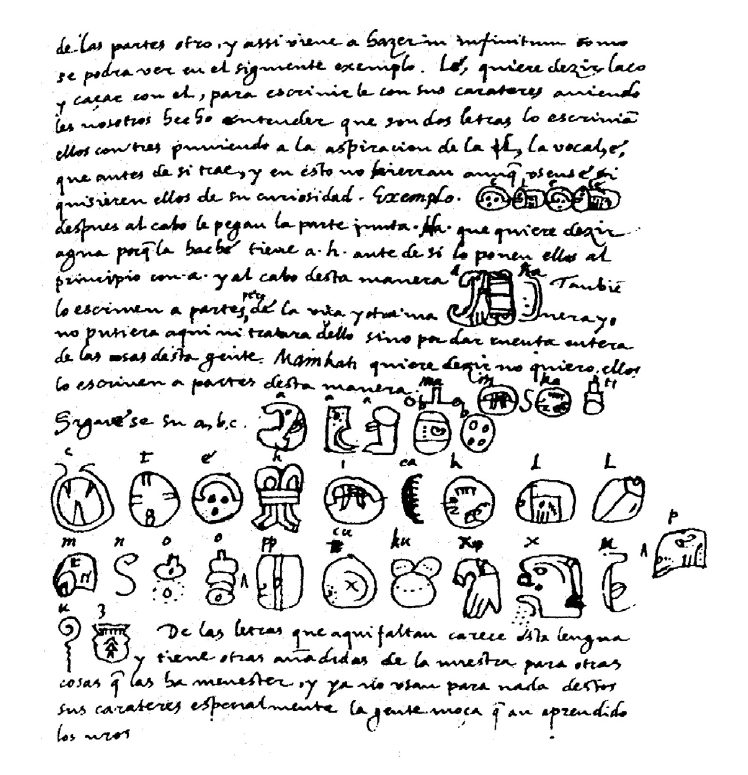 de las partes otro, y assi viene a hazer in infinitum como
se podra ver en el siguiente exemplo. Lé, quiere dezir laço
y caçar con el, para escrivirle con sus carateres aviendo
les nosotros hecho entender que son dos letras lo escrivian
ellos con tres puniendo a la aspiracion de la l, la vocal, é,
que antes de si trae, y en esto no hierran aunq̃ usense si
quisieren ellos de su curiosidad. Exemplo.
despues al cabo le pegan la parte junta. Ha. que quiere dezir
agua porq̃ la haché tiene a. h. ante de si lo ponen ellos al
principio con a. y al cabo desta manera a ha Tanbiē
lo escriven a partes, pero de la una y otra ma nera yo
no pusiera aqui ni tratara dello sino por dar cuenta entera
de las cosas desta gente. Mainkati quiere dezir no quiero, ellos
lo escriven a partes desta manera ma in ka ti
Siguese su a, b, c. a a a b b
c t é h i ca k l l
m n o o pp cu ku x x u p
u z De las letras que aqui faltan carece esta lengua
y tiene otras añadidas de la nuestra para otras
cosas q̃ las ha menester, y ya no usan para nada destos
sus carateres especialmente la gente moça q̃ an aprendido
los nros